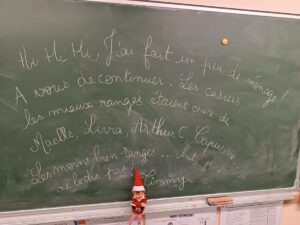 Hi Hi Hi, J'ai fait un peu de ménage !
A vous de continuer. Les casiers
les mieux rangés étaient ceux de
Maëlle, Livia, Arthur C, Capucine
Les moins bien rangés ... chut je
Emmy